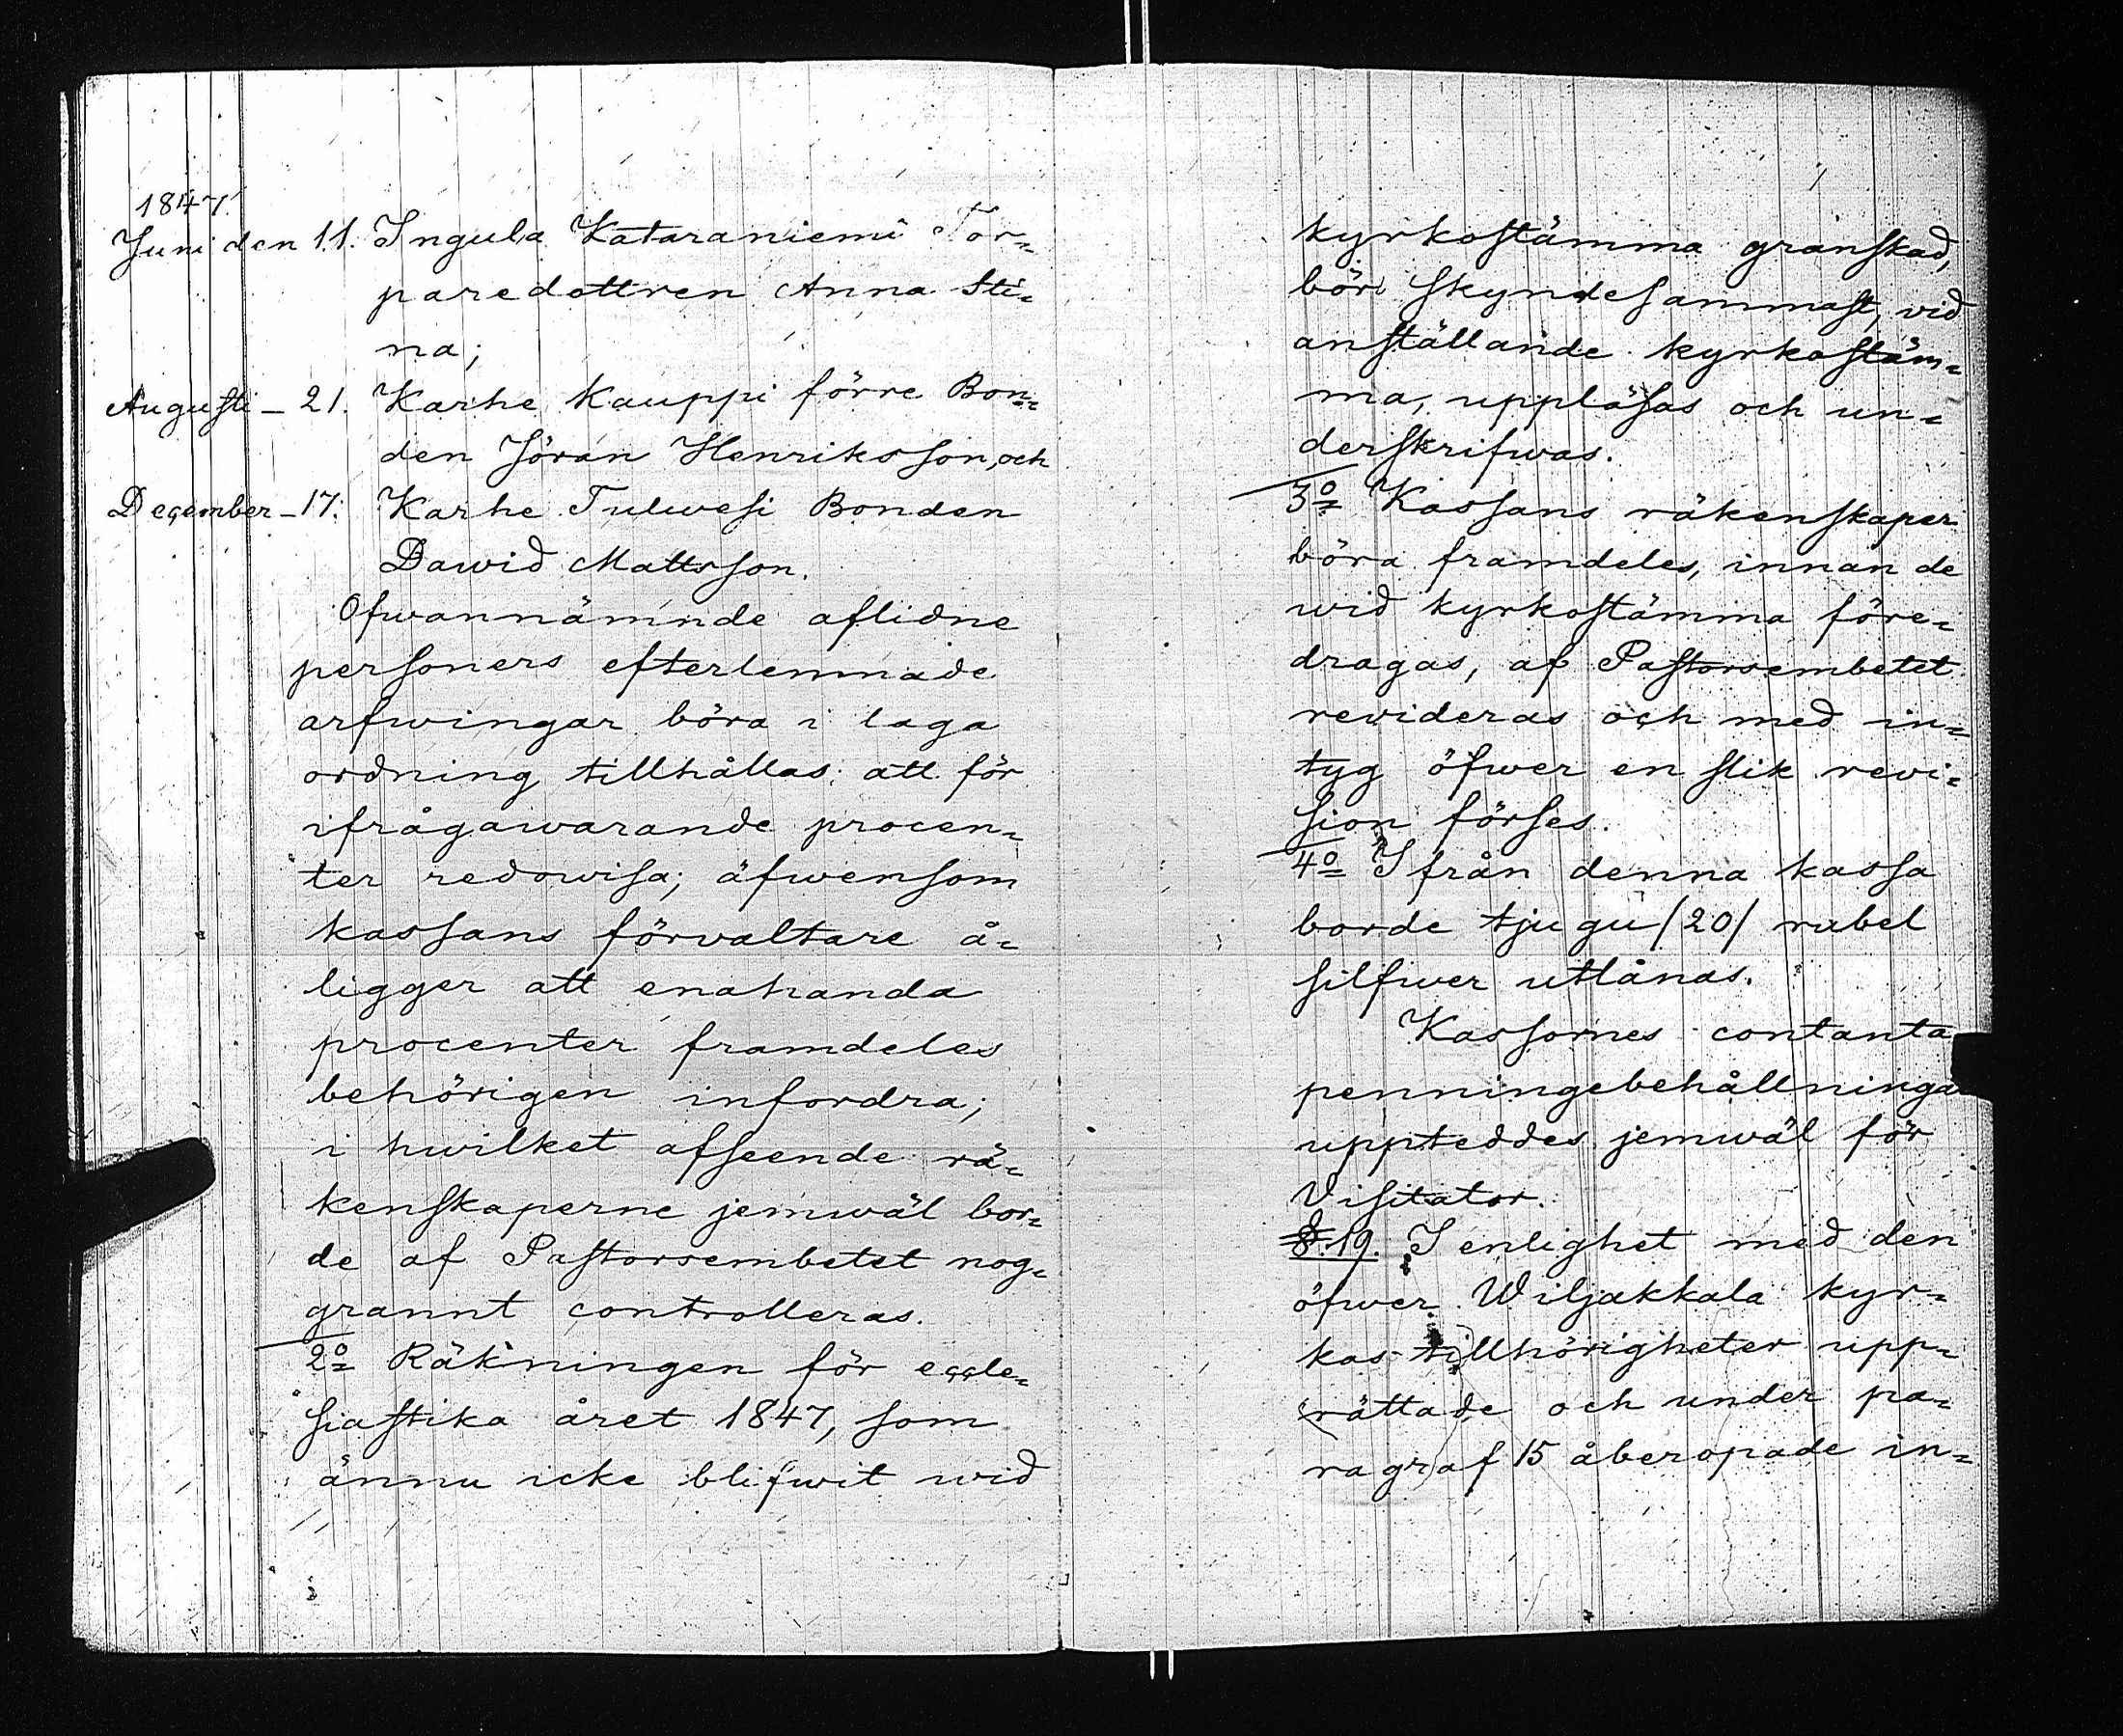 1847.
Juni den 11. Ingula Kataraniemi Tor=
paredottren Anna Sti=
na;
Augusti – 21. Karhe Kauppi förre Bon=
den Jöran Henriksson, och
December – 17. Karhe Tulwesi Bonden
Dawid Mattsson.
Ofwannämnde aflidne
personers efterlemnade
arfwingar böra i laga
ordning tillhållas att för
ifrågawarande procen=
ter redowisa; äfwensom
kassans förvaltare å=
ligger att enahanda
procenter framdeles
behörigen infordra;
i hwilket afseende rä=
kenskaperne jemwäl bor=
de af Pastorsembetet nog=
grannt controlleras.
2o Räkningen för eccle=
siastika året 1847, som
ännu icke blifwit wid
kyrkostämma granskad,
bör skyndesammast, vid
anställande kyrkostäm=
ma, uppläsas och un=
derskrifwas.
3o Kassans räkenskaper
böra framdeles, innan de
wid kyrkostämma före=
dragas, af Pastorsembetet
revideras och med in=
tyg öfwer en slik revi=
sion förses.
4o Ifrån denna kassa
borde tjugu /20/ rubel
silfwer utlånas.
Kassornes contanta
penningebehållningar
uppteddes jemwäl för
Visitator.
§. 19. I enlighet med den
öfwer Wiljakkala kyr=
kas tillhörigheter upp=
rättade och under pa=
ragraf 15 åberopade in=